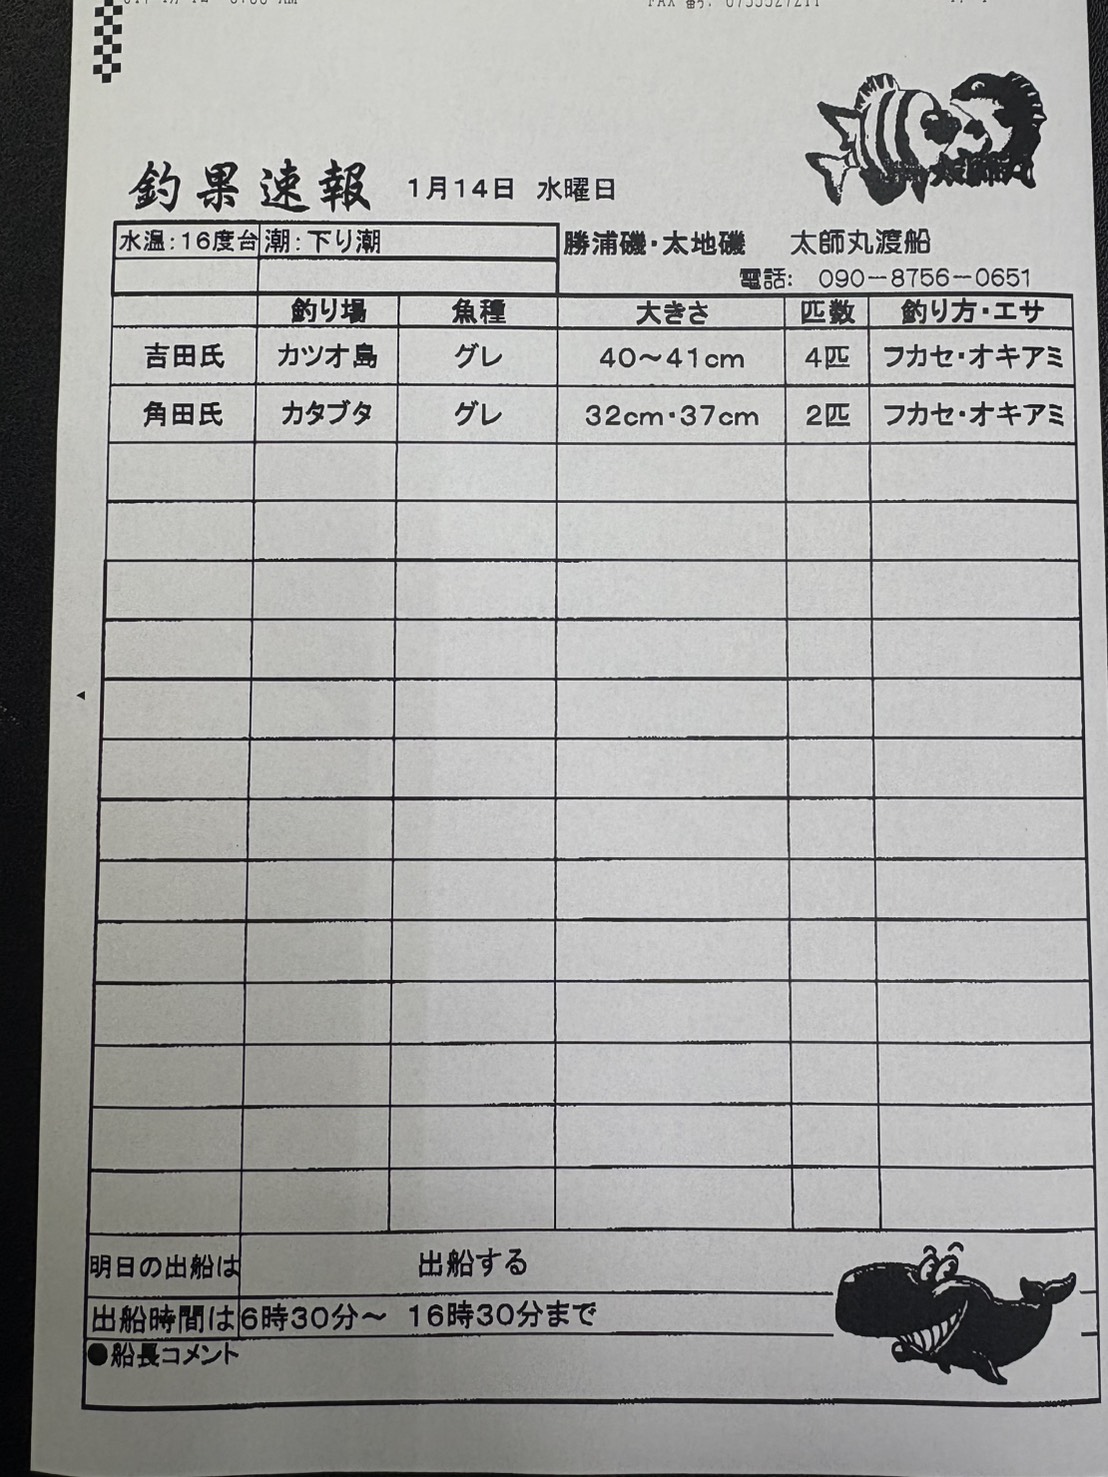 釣果速報 1月14日 水曜日
水温：16度台 潮：下り潮 勝浦磯・太地磯 太師丸渡船
電話: 090－8756－0651
釣り場 魚種 大きさ 匹数 釣り方・エサ
吉田氏 カツオ島 グレ 40～41cm 4匹 フカセ・オキアミ
角田氏 カタブタ グレ 32cm・37cm 2匹 フカセ・オキアミ
明日の出船は 出船する
出船時間は 6時30分～ 16時30分まで
●船長コメント